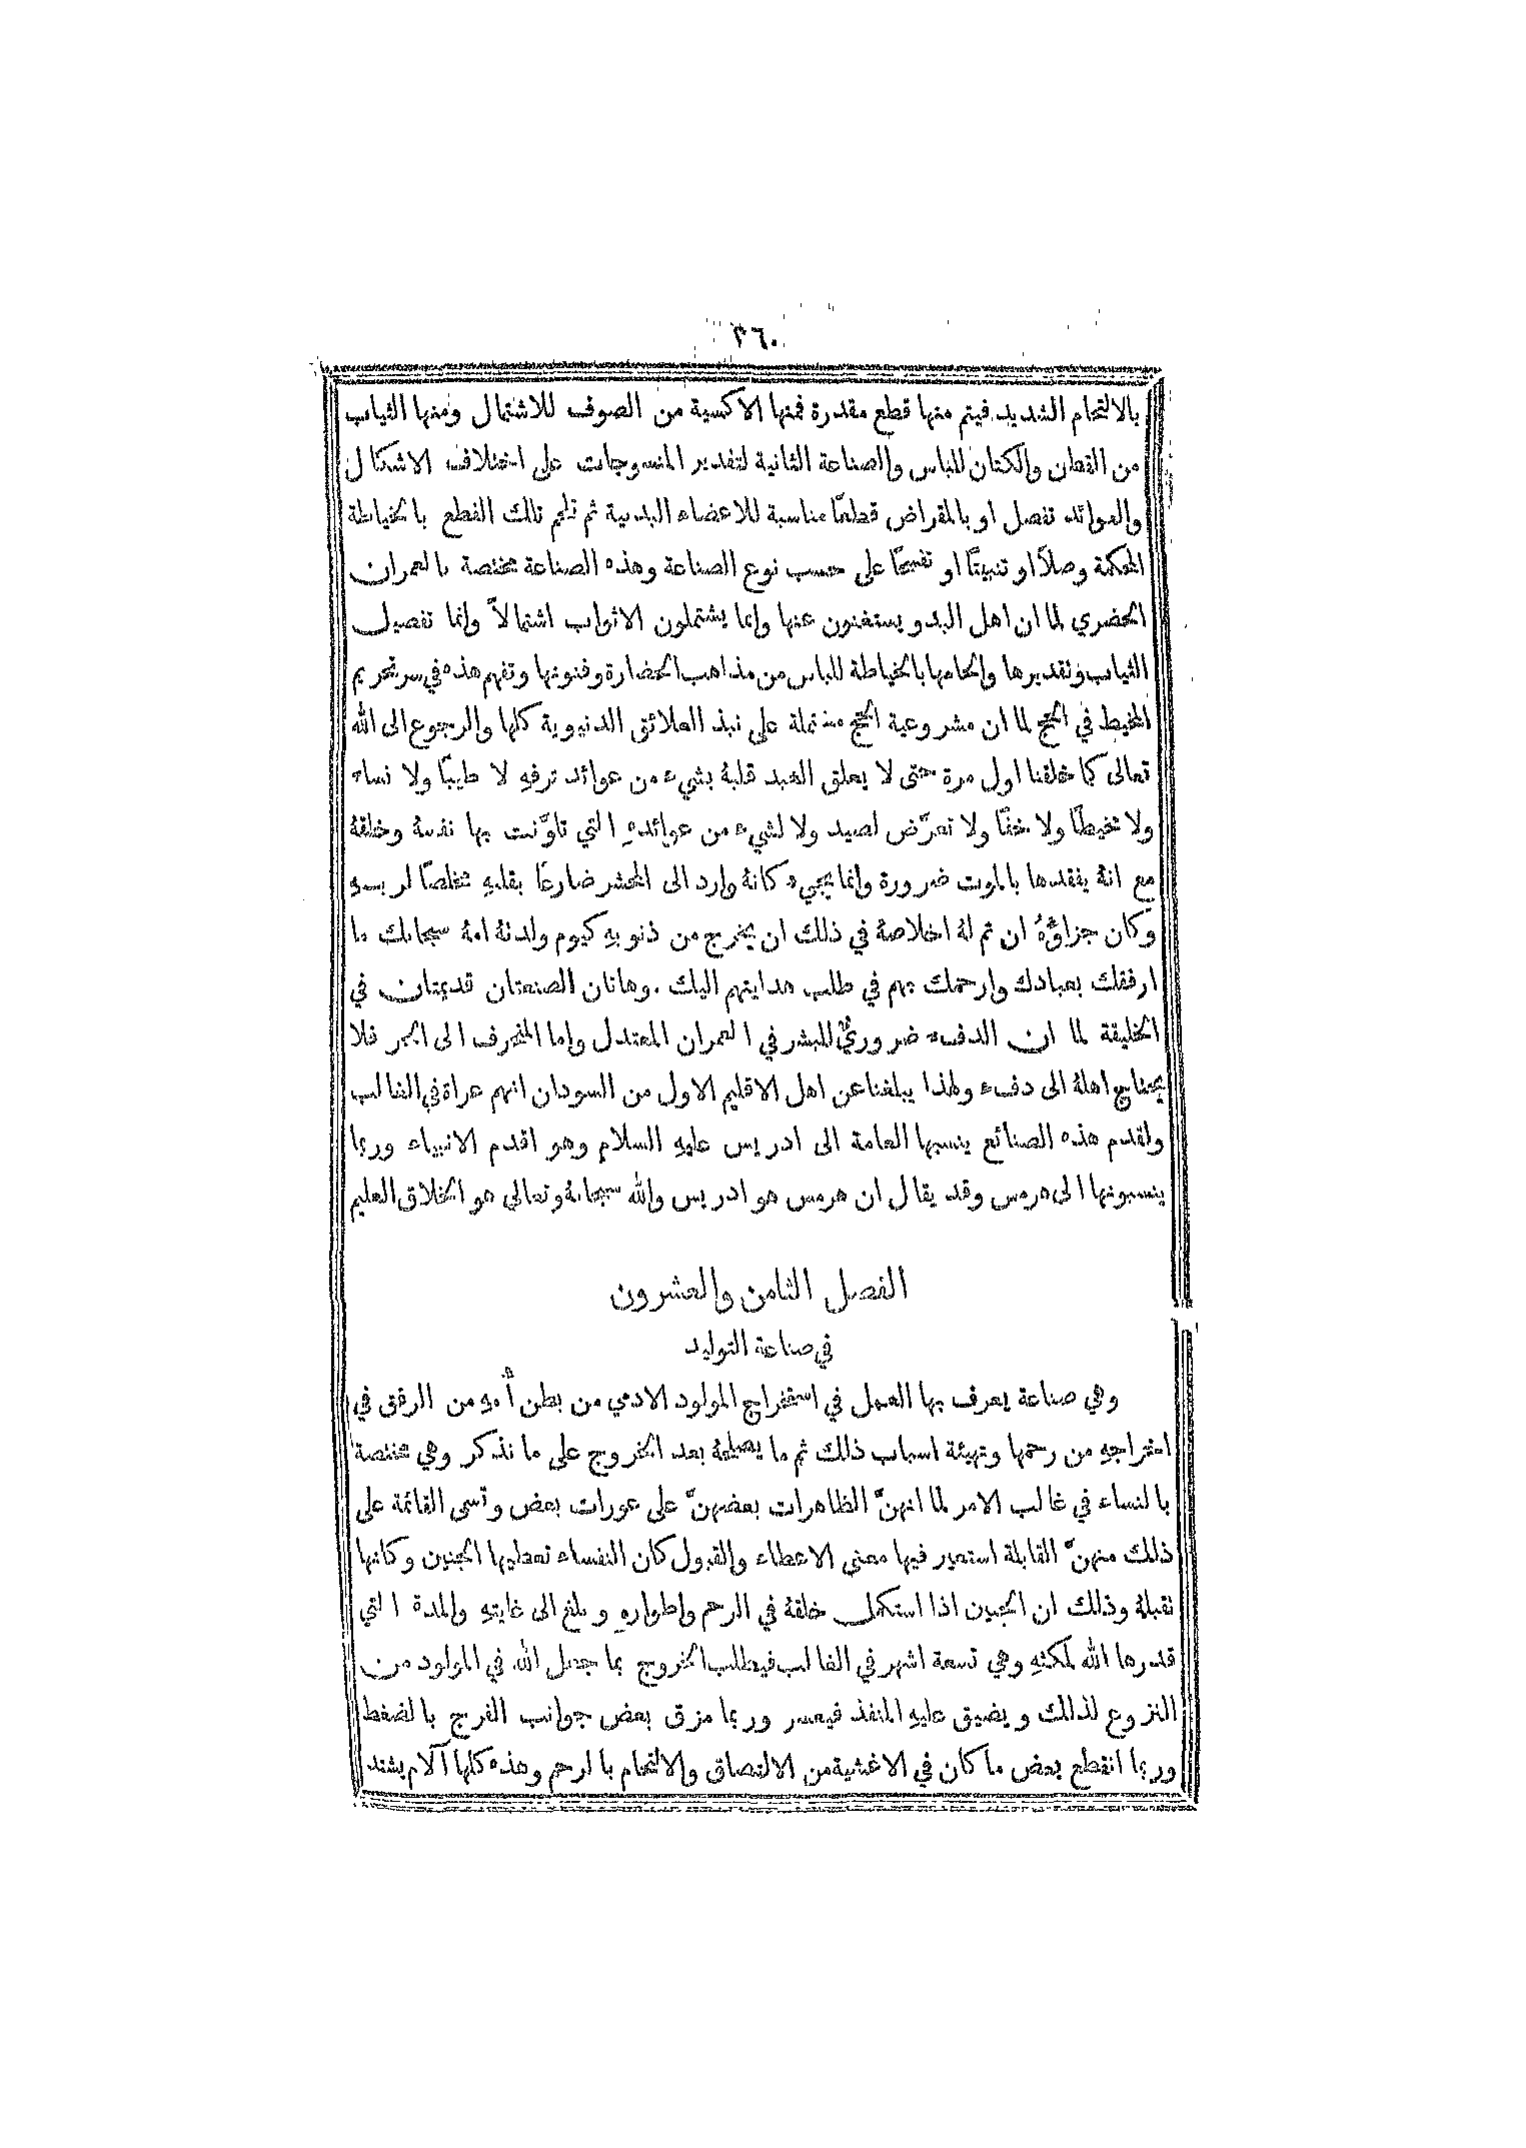 ٣٦٠
بالالتحام الشديد فيتم منها قطع مقدرة فمنها الاكسية من الصوف للاشتمال ومنها الثياب
من القطن والكتان للباس والصناعة الثانية لتقدير المنسوجات على اختلاف الاشكال
والعوائد تفصل او بالمقراض قطعًا مناسبة للاعضاء البدنية ثم تلحم تلك القطع بالخياطة
المحكمة وصلاً او تنبيتًا او تفسحًا على حسب نوع الصناعة وهذه الصناعة مختصة بالعمران
الحضري لما ان اهل البدو يستغنون عنها وانما يشتملون الاثواب اشتمالاً وانما تفصيل
الثياب وتقديرها والحامها بالخياطة للباس من مذاهب الحضارة وفنونها وتفهم هذه في سر تحريم
المخيط في الحج لما ان مشروعية الحج مشتملة على نبذ العلائق الدنيوية كلها والرجوع الى الله
تعالى كما خلقنا اول مرة حتى لا يعلق العبد قلبهُ بشيء من عوائد ترفهِ لا طيبًا ولا نساء
ولا مخيطًا ولا خفًا ولا تعرّض لصيد ولا لشيء من عوائدهِ التي تلوّنت بها نفسهُ وخلقهُ
مع انهُ يفقدها بالموت ضرورة وانما يجيء كانهُ وارد الى المحشر ضارعًا بقلبهِ مخلصًا لربهِ
وكان جزاؤُهُ ان تم لهُ اخلاصهُ في ذلك ان يخرج من ذنوبهِ كيوم ولدتهُ امهُ سبحانك ما
ارفقك بعبادك وارحمك بهم في طلب هدايتهم اليك . وهاتان الصنعتان قديمتان في
الخليقة لما ان الدفء ضروريٌّ للبشر في العمران المعتدل واما المنحرف الى الحر فلا
يحتاج اهلهُ الى دفء ولهذا يبلغنا عن اهل الاقليم الاول من السودان انهم عراة في الغالب
ولقدم هذه الصنائع ينسبها العامة الى ادريس عليهِ السلام وهو اقدم الانبياء وربما
ينسبونها الى هرمس وقد يقال ان هرمس هو ادريس والله سبحانهُ وتعالى هو الخلاق العليم
الفصل الثامن والعشرون
في صناعة التوليد
وهي صناعة يعرف بها العمل في استخراج المولود الادمي من بطن أُمهِ من الرفق في
اخراجهِ من رحمها وتهيئة اسباب ذلك ثم ما يصلحهُ بعد الخروج على ما نذكر وهي مختصة
بالنساء في غالب الامر لما انهنّ الظاهرات بعضهنّ على عورات بعض وتسمى القائمة على
ذلك منهنّ القابلة استعير فيها معنى الاعطاء والقبول كان النفساء تعطيها الجنين وكانها
تقبلهُ وذلك ان الجنين اذا استكمل خلقهُ في الرحم واطوارهِ وبلغ الى غايتهِ والمدة التي
قدرها الله لمكثهِ وهي تسعة اشهر في الغالب فيطلب الخروج بما جعل الله في المولود من
النزوع لذلك ويضيق عليهِ المنفذ فيعسر وربما مزق بعض جوانب الفرج بالضغط
وربما انقطع بعض ما كان في الاغشية من الالتصاق والالتحام بالرحم وهذه كلها آلام يشتد